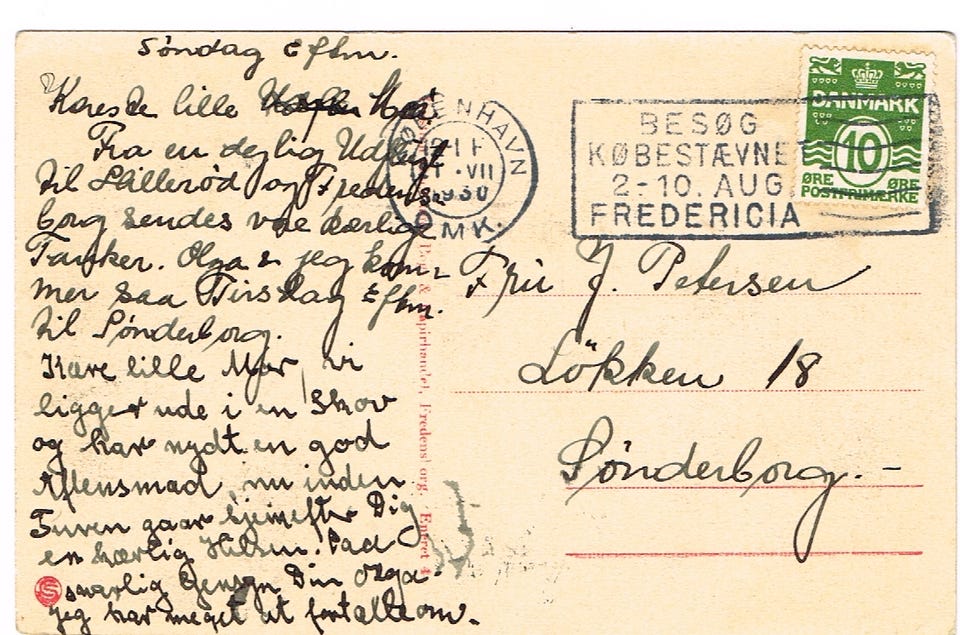 Søndag Eftm.
Kæreste lille Mor
Fra en dejlig Udflugt
til Hillerød og Fredens-
borg sendes vore kærlige
Tanker. Olga & jeg kom-
mer saa Tirsdag Eftm.
til Sønderborg.
Kære lille Mor, vi
ligger ude i en Skov
og har nydt en god
Aftensmad, nu inden
Turen gaar hjemefter Dig
en kærlig Hilsen. Paa
snarlig Gensyn Din Olga.
jeg har meget at fortælle om.
KØBENHAVN
1930
OMK.
BESØG
KØBESTÆVNET
2-10. AUG
FREDERICIA
DANMARK
10
ØRE ØRE
POSTFRIMÆRKE
Fru J. Petersen
Lökken 18
Sønderborg.-
Papirhandel, Fredensborg. Eneret